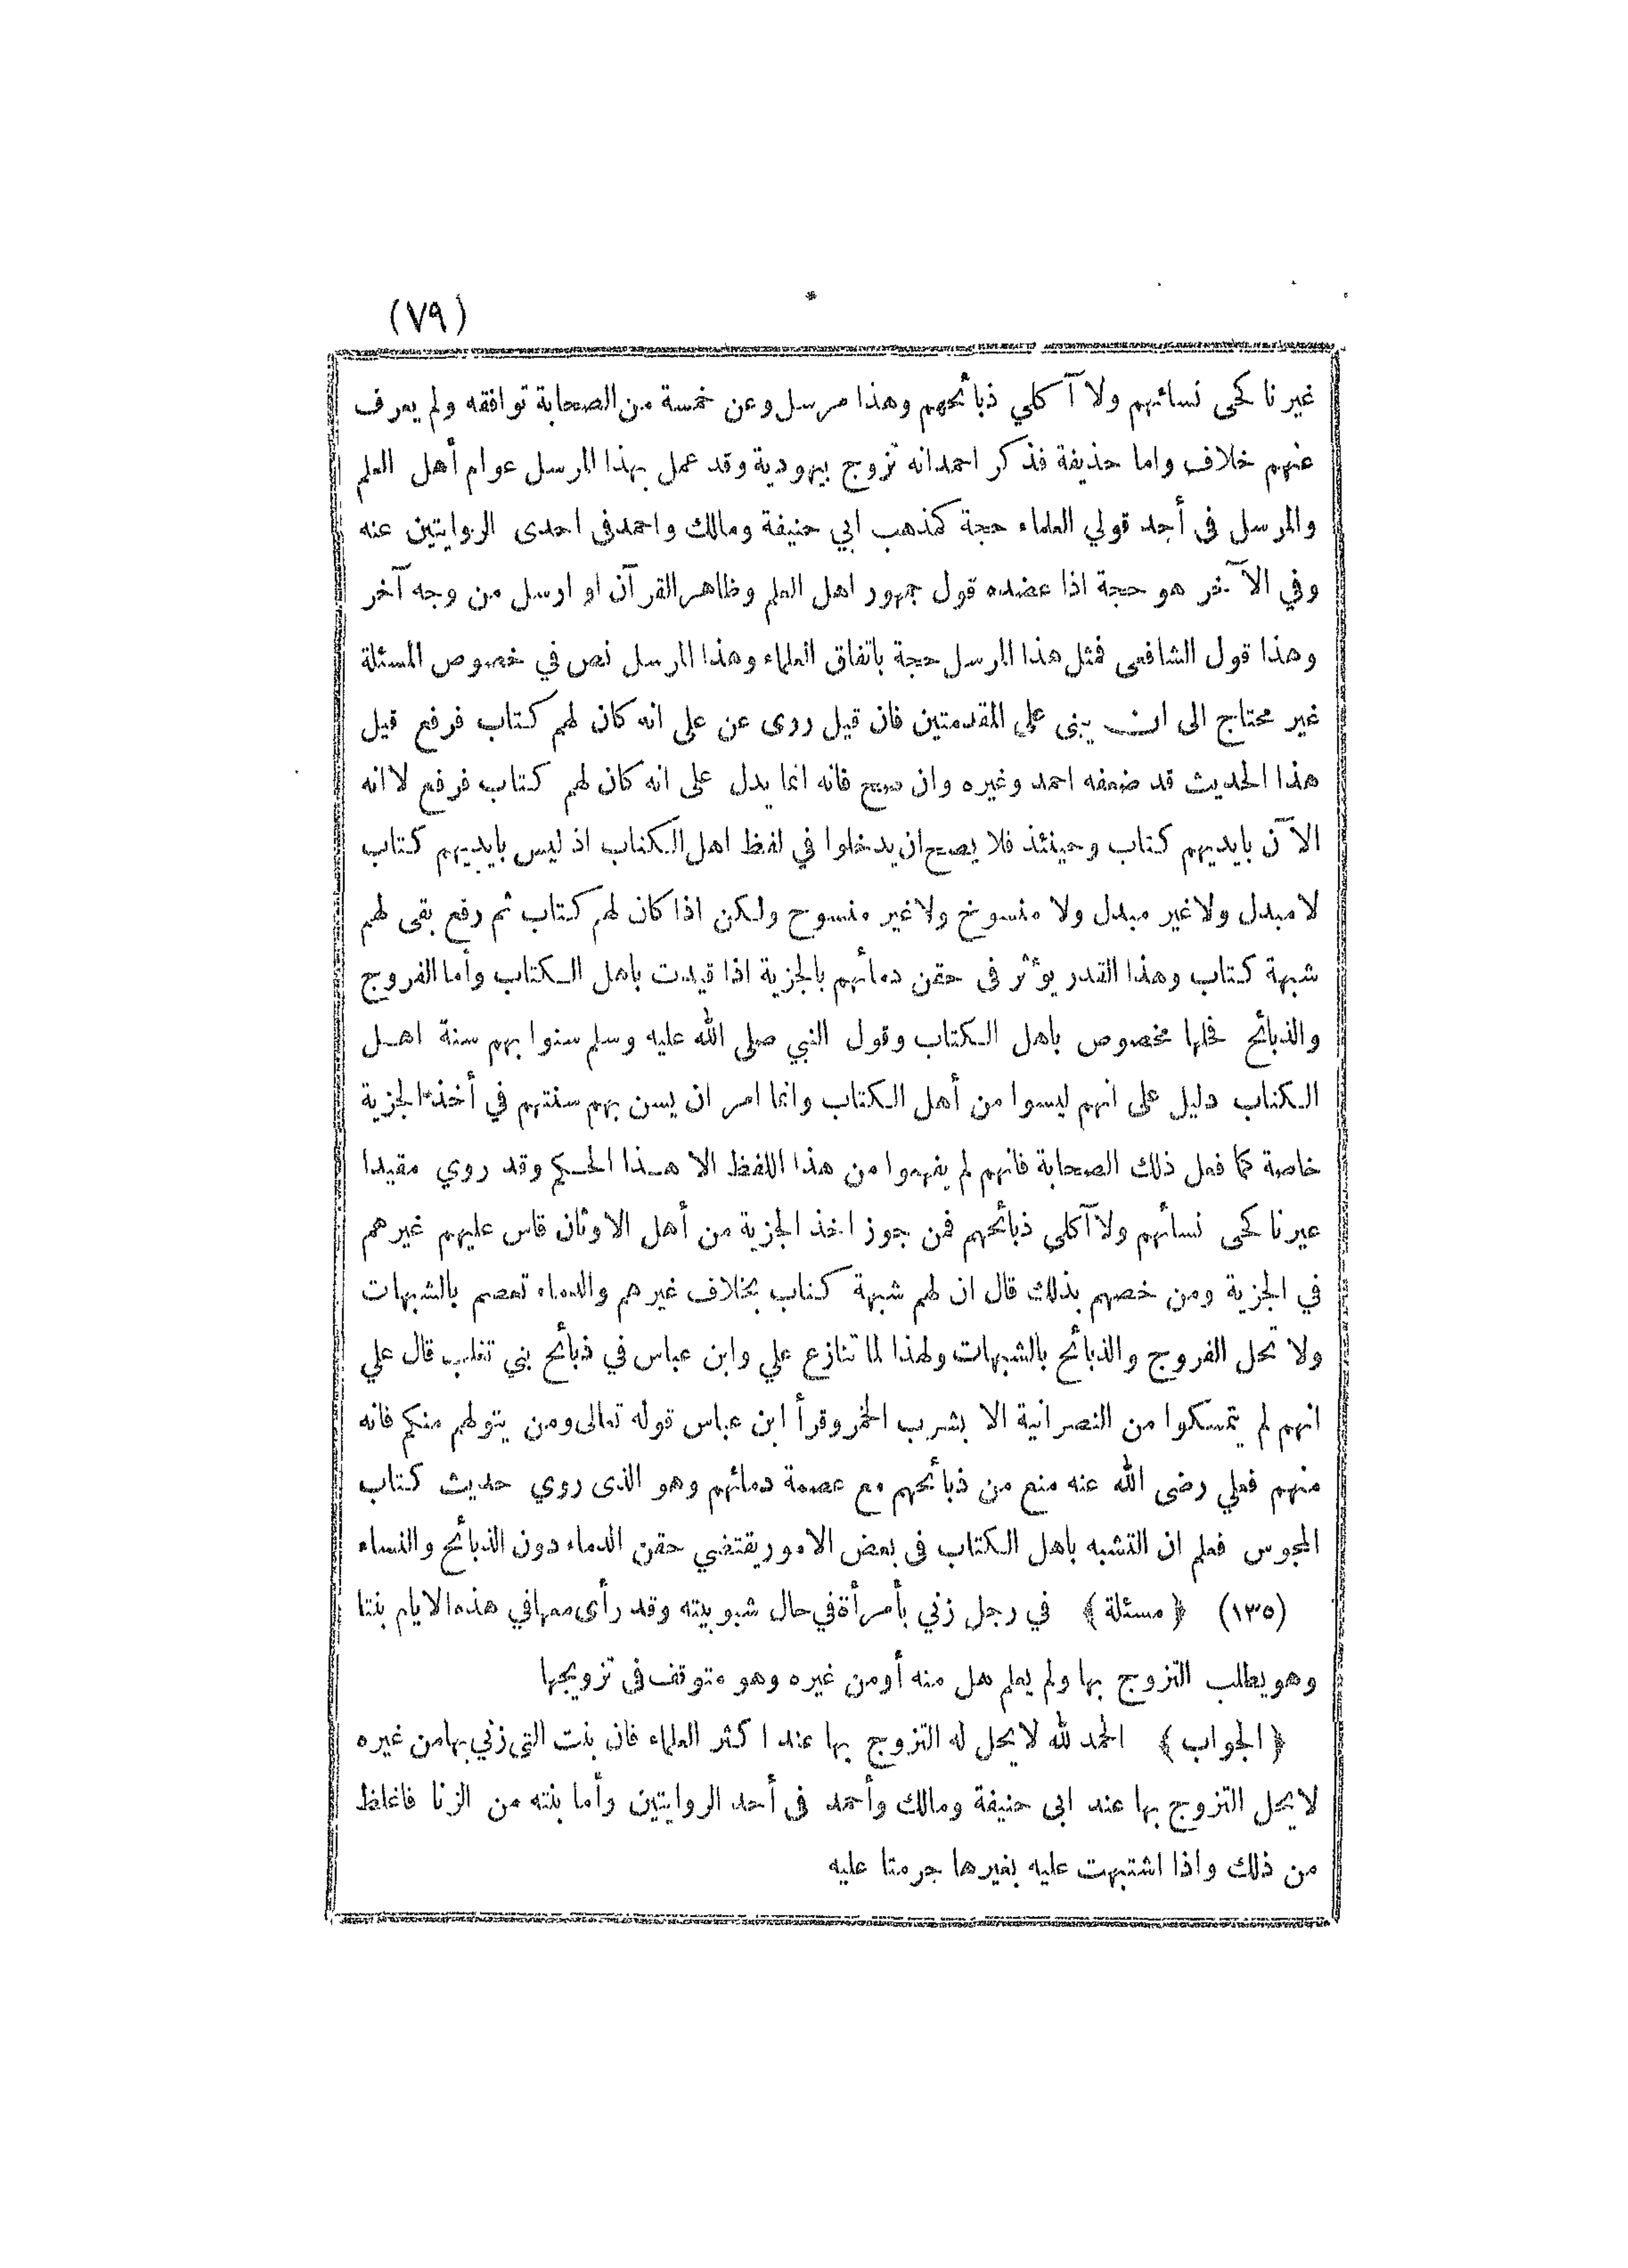 (٧٩)
غير ناكحى نسائهم ولا آكلي ذبائحهم وهذا مرسل وعن خمسة من الصحابة توافقه ولم يعرف
عنهم خلاف واما حذيفة فذكر احمد انه تزوج بيهودية وقد عمل بهذا المرسل عوام أهل العلم
والمرسل فى أحد قولي العلماء حجة كمذهب ابي حنيفة ومالك واحمد فى احدى الروايتين عنه
وفي الآخر هو حجة اذا عضده قول جمهور اهل العلم وظاهر القرآن او ارسل من وجه آخر
وهذا قول الشافعى فمثل هذا المرسل حجة باتفاق العلماء وهذا المرسل نص في خصوص المسئلة
غير محتاج الى ان يبنى على المقدمتين فان قيل روى عن على انه كان لهم كتاب فرفع قيل
هذا الحديث قد ضعفه احمد وغيره وان صح فانه انما يدل على انه كان لهم كتاب فرفع لا انه
الآن بايديهم كتاب وحينئذ فلا يصح ان يدخلوا في لفظ اهل الكتاب اذ ليس بايديهم كتاب
لا مبدل ولا غير مبدل ولا منسوخ ولا غير منسوح ولكن اذا كان لهم كتاب ثم رفع بقى لهم
شبهة كتاب وهذا القدر يؤثر فى حقن دمائهم بالجزية اذا قيدت باهل الكتاب وأما الفروج
والذبائح فحلها مخصوص باهل الكتاب وقول النبي صلى الله عليه وسلم سنوا بهم سنة اهل
الكتاب دليل على انهم ليسوا من أهل الكتاب وانما امر ان يسن بهم سنتهم في أخذ الجزية
خاصة كما فعل ذلك الصحابة فانهم لم يفهموا من هذا اللفظ الا هذا الحكم وقد روي مقيدا
عير ناكحى نسائهم ولا آكلي ذبائحهم فمن جوز اخذ الجزية من أهل الاوثان قاس عليهم غيرهم
في الجزية ومن خصهم بذلك قال ان لهم شبهة كتاب بخلاف غيرهم والدماء تعصم بالشبهات
ولا تحل الفروج والذبائح بالشبهات ولهذا لما تنازع علي وابن عباس في ذبائح بني تغلب قال علي
انهم لم يتمسكوا من النصرانية الا بشرب الخمر وقرأ ابن عباس قوله تعالى ومن يتولهم منكم فانه
منهم فعلي رضى الله عنه منع من ذبائحهم مع عصمة دمائهم وهو الذى روي حديث كتاب
المجوس فعلم ان التشبه باهل الكتاب فى بعض الامور يقتضي حقن الدماء دون الذبائح والنساء
(١٣٥) ﴿مسئلة﴾ في رجل زني بأمرأة في حال شبوبيته وقد رأى معها في هذه الايام بنتا
وهو يطلب التزوج بها ولم يعلم هل منه أو من غيره وهو متوقف فى تزويجها
﴿الجواب﴾ الحمد لله لا يحل له التزوج بها عند اكثر العلماء فان بنت التي زني بها من غيره
لا يحل التزوج بها عند ابى حنيفة ومالك وأحمد فى أحد الروايتين وأما بنته من الزنا فاغلظ
من ذلك واذا اشتبهت عليه بغيرها حرمتا عليه